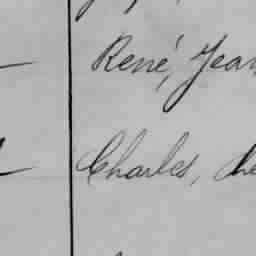 René, Jean
Charles,